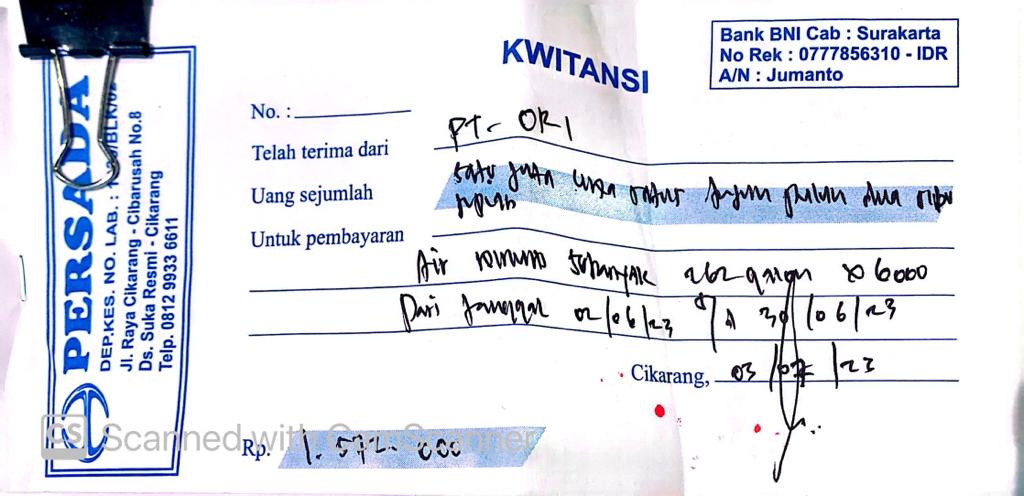 PERSADA
DEP.KES. NO. LAB. :
Jl. Raya Cikarang - Cibarusah No.8
Ds. Suka Resmi - Cikarang
Telp. 0812 9933 6611
KWITANSI
Bank BNI Cab : Surakarta
No Rek : 0777856310 - IDR
A/N : Jumanto
No. :
Telah terima dari PT. ORI
Uang sejumlah satu juta lima ratus tujuh puluh dua ribu
rupiah
Untuk pembayaran
Air minum sebanyak 262 galon x 6000
Dari tanggal 02/06/23 s/d 30/06/23
Cikarang, 03/07/23
Rp. 1.572.000
CS Scanned with CamScanner